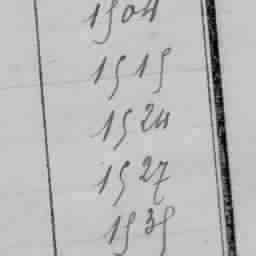 1504
1515
1524
1527
1535